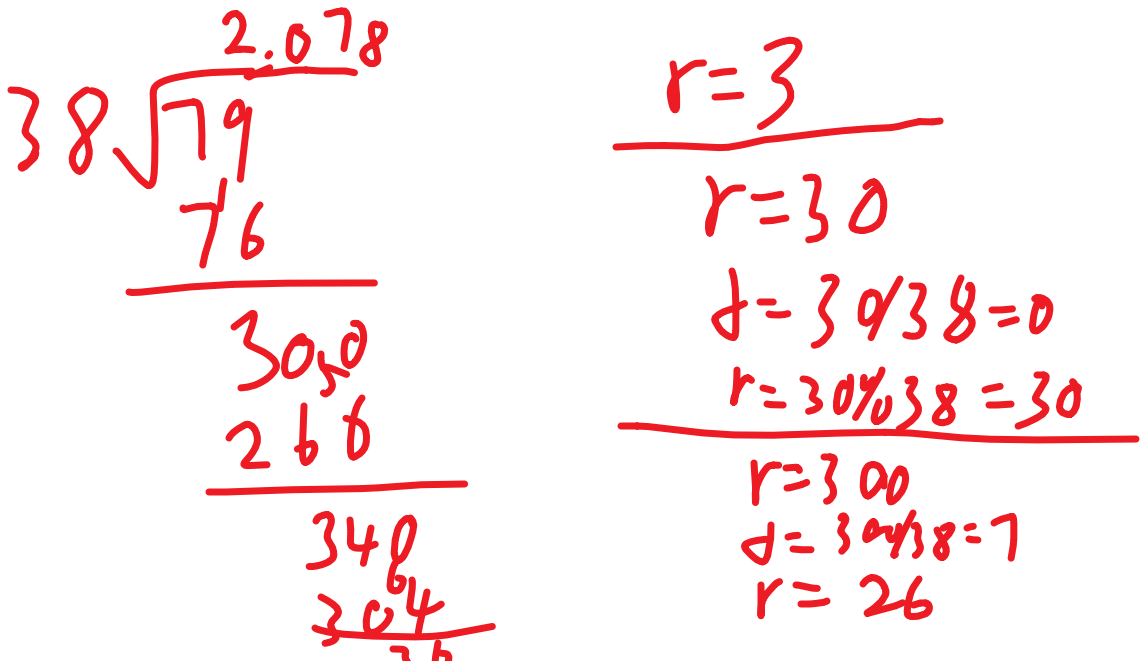 2.078
38√79
76
30,0
266
340
304
36
r=3
r=30
d=30/38=0
r=30%38=30
r=300
d=300/38=7
r=26